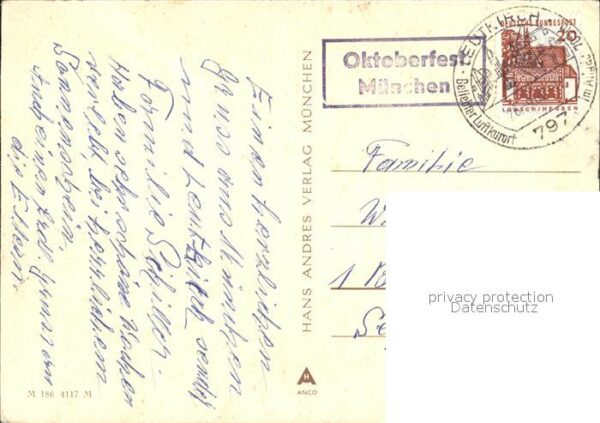 Einen herzlichen
Gruss aus München
und Leutkirch sendet
Familie Schiller.
Haben sehr schöne Wochen
verlebt bei herrlichem
Sonnenschein.
Auch einen Grus von
die Eltern.
M 186 4117 M
HANS ANDRES VERLAG MÜNCHEN
ANCO
Oktoberfest
München
LEUTKIRCH
Beliebter Luftkurort
797
DEUTSCHE BUNDESPOST
20
LORSCH/HESSEN
Familie
W
1
privacy protection
Datenschutz